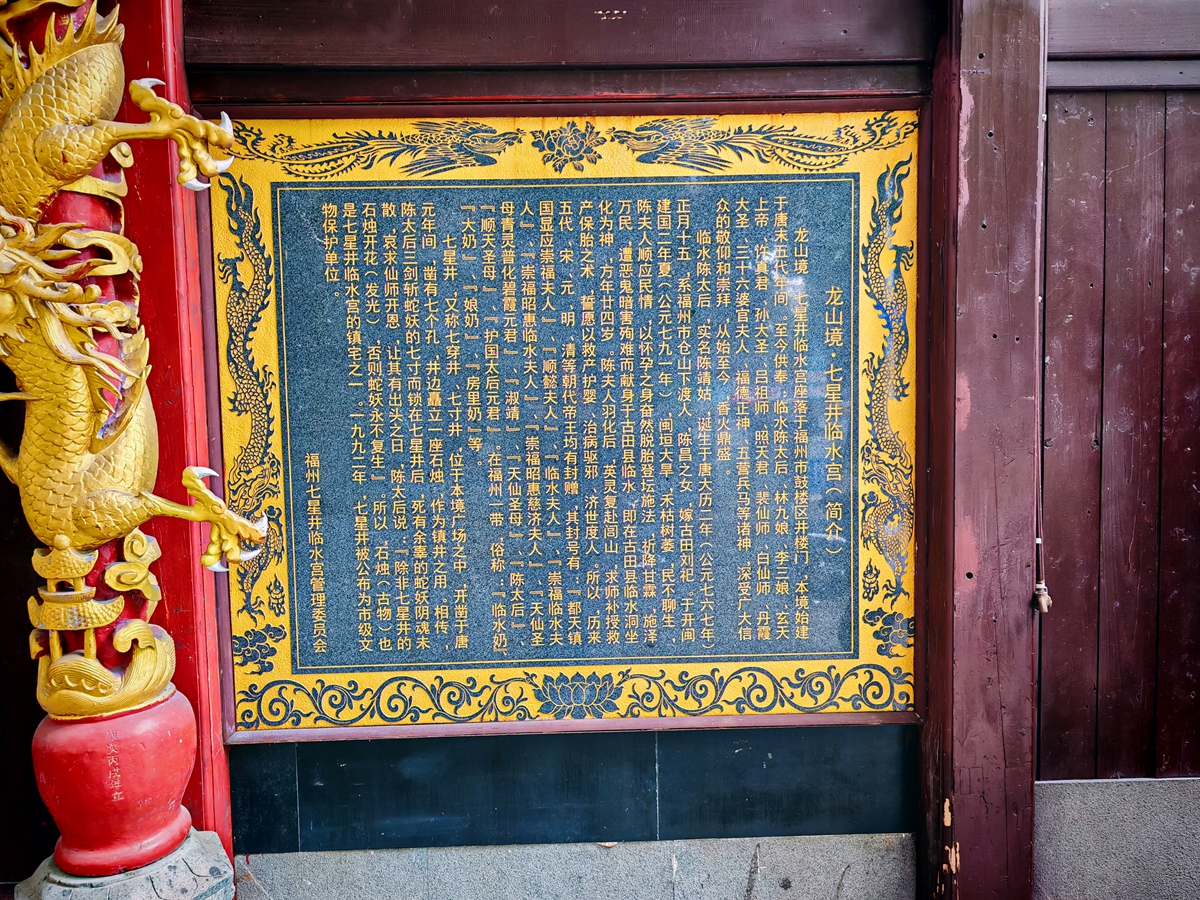 龙山境·七星井临水宫（简介）
龙山境，七星井临水宫座落于福州市鼓楼区井楼门，本境始建
于唐末五代年间。至今供奉：临水陈太后，林九娘，李三娘，玄天
上帝，许真君，孙大圣，吕祖师，照天君，裴仙师，白仙师，丹霞
大圣，三十六婆官夫人，福德正神，五营兵马等诸神，深受广大信
众的敬仰和崇拜，从始至今，香火鼎盛。
临水陈太后，实名陈靖姑，诞生于唐大历二年（公元七六七年）
正月十五，系福州市仓山下渡人，陈昌之女，嫁古田刘杞。于开闽
建国二年夏（公元七九一年），闽垣大旱，禾枯树萎，民不聊生，
陈夫人顺应民情，以怀孕之身奋然脱胎登坛施法，祈降甘霖，施泽
万民，遭恶鬼暗害殉难而献身于古田县临水，即在古田县临水洞坐
化为神，方年廿四岁。陈夫人羽化后，英灵复赴闾山，求师补授救
产保胎之术，誓愿以救产护婴、治病驱邪，济世度人。所以，历来
五代、宋、元、明、清等朝代帝王均有封赠，其封号有：『都天镇
国显应崇福夫人』、『顺懿夫人』、『临水夫人』、『崇福临水夫
人』、『崇福昭惠临水夫人』、『崇福昭惠慈济夫人』、『天仙圣
母青灵普化碧霞元君』、『淑靖』、『天仙圣母』、『陈太后』、
『顺天圣母』、『护国太后元君』。在福州一带，俗称：『临水奶』、
『大奶』、『娘奶』、『房里奶』等。
七星井，又称七穿井、七寸井，位于本境广场之中，开凿于唐
元年间，凿有七个孔，井边矗立一座石烛，作为镇井之用。相传，
陈太后三剑斩蛇妖的七寸而锁在七星井后，死有余辜的蛇妖阴魂未
散，哀求仙师开恩，让其有出头之日，陈太后说：『除非七星井的
石烛开花（发光），否则蛇妖永不复生』。所以，石烛（古物）也
是七星井临水宫的镇宅之一。一九九二年，七星井被公布为市级文
物保护单位。
福州七星井临水宫管理委员会
丙戌年立